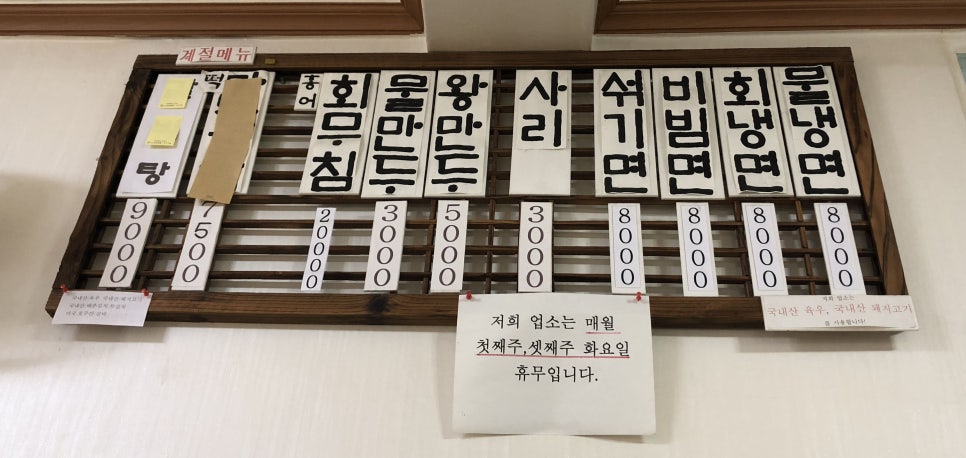 계절메뉴
탕
9000
떡
7500
홍어
회무침
20000
물만두
3000
왕만두
5000
사리
3000
섞기면
8000
비빔면
8000
회냉면
8000
물냉면
8000
저희 업소는 매월
첫째주,셋째주 화요일
휴무입니다.
저희 업소는
국내산 육우, 국내산 돼지고기
를 사용합니다!